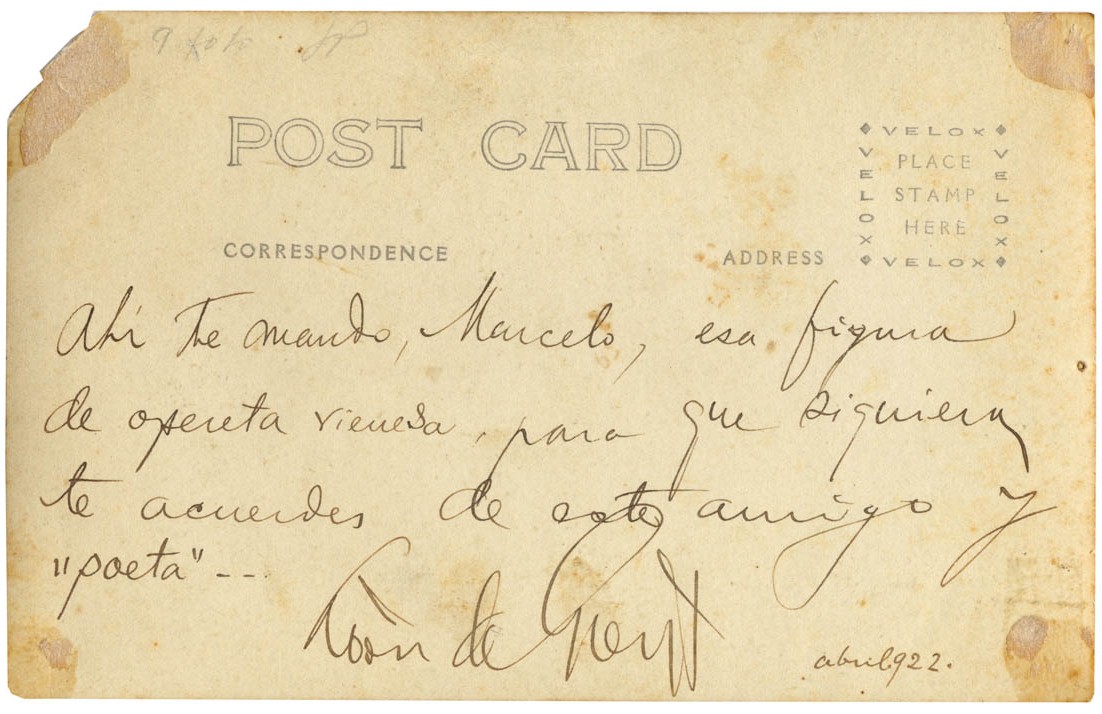 POST CARD
VELOX
VELOX
VELOX
PLACE
STAMP
HERE
VELOX
CORRESPONDENCE
ADDRESS
Ahí te mando, Marcelo, esa figura
de opereta vienesa, para que siquiera
te acuerdes de este amigo y
"poeta"---
León de Greiff
abril 922.